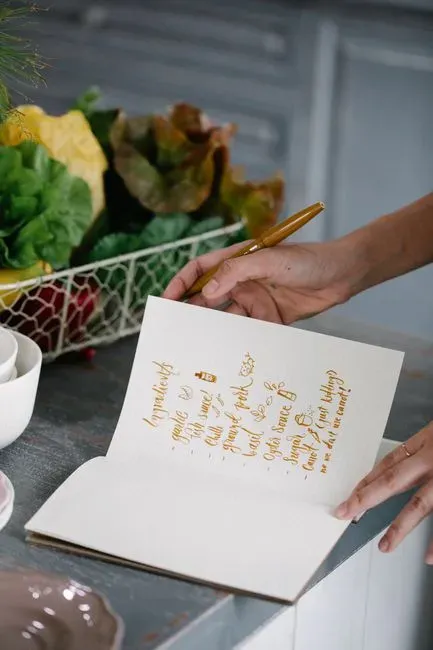 Ingredients
- garlic
- Fish sauce!
- Chilli
- ground pork
- basil
- Oyster Sauce
- Sugar
- Carrot (just kidding)
no we don't we cannot!